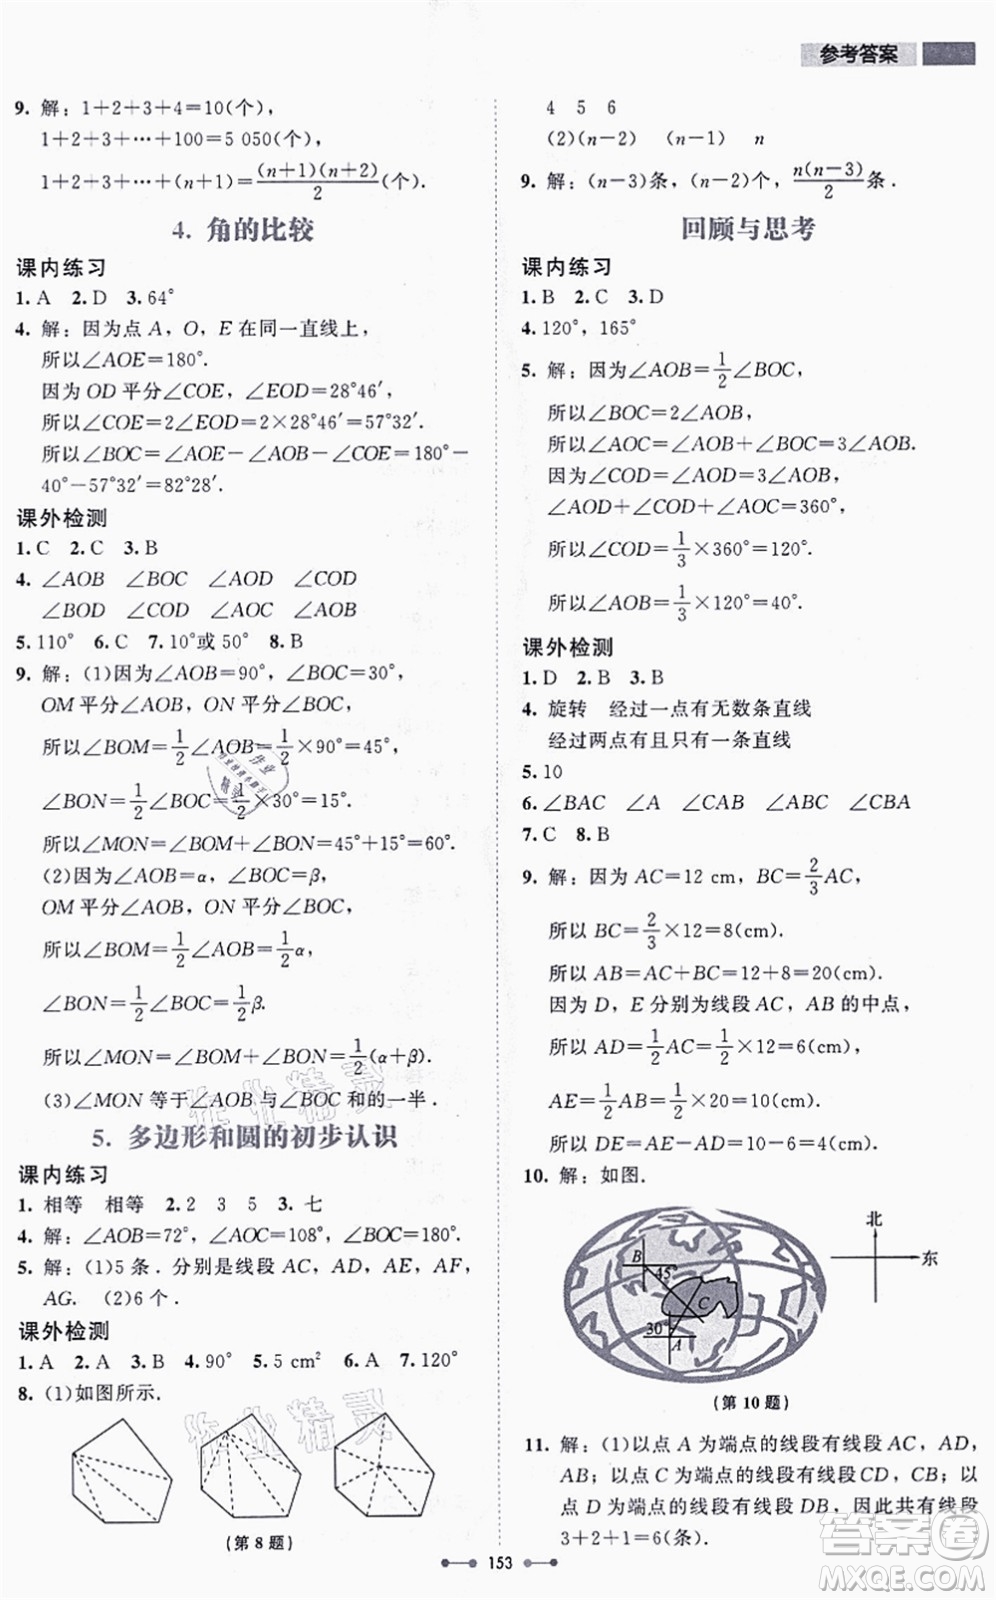 参考答案
9. 解：1+2+3+4=10(个),
1+2+3+…+100=5 050(个),
1+2+3+…+(n+1)=\frac{(n+1)(n+2)}{2}(个).
4. 角的比较
课内练习
1. A 2. D 3. 64°
4. 解：因为点 A，O，E 在同一直线上，
所以∠AOE=180°.
因为 OD 平分∠COE，∠EOD=28°46′，
所以∠COE=2∠EOD=2×28°46′=57°32′.
所以∠BOC=∠AOE-∠AOB-∠COE=180°-
40°-57°32′=82°28′.
课外检测
1. C 2. C 3. B
4. ∠AOB ∠BOC ∠AOD ∠COD
∠BOD ∠COD ∠AOC ∠AOD
5. 110° 6. C 7. 10°或 50° 8. B
9. 解：(1)因为∠AOB=90°，∠BOC=30°，
OM 平分∠AOB，ON 平分∠BOC，
所以∠BOM=\frac{1}{2}∠AOB=\frac{1}{2}×90°=45°，
∠BON=\frac{1}{2}∠BOC=\frac{1}{2}×30°=15°.
所以∠MON=∠BOM+∠BON=45°+15°=60°.
(2)因为∠AOB=α，∠BOC=β，
OM 平分∠AOB，ON 平分∠BOC，
所以∠BOM=\frac{1}{2}∠AOB=\frac{1}{2}α，
∠BON=\frac{1}{2}∠BOC=\frac{1}{2}β.
所以∠MON=∠BOM+∠BON=\frac{1}{2}(α+β).
(3)∠MON 等于∠AOB 与∠BOC 和的一半．
5. 多边形和圆的初步认识
课内练习
1. 相等 相等 2. 2 3 5 3. 七
4. 解：∠AOB=72°，∠AOC=108°，∠BOC=180°.
5. 解：(1)5 条．分别是线段 AC，AD，AE，AF，
AG. (2)6 个．
课外检测
1. A 2. A 3. B 4. 90° 5. 5 cm² 6. A 7. 120°
8. (1)如图所示.
(第 8 题)
4 5 6
(2)(n-2) (n-1) n
9. 解：(n-3)条，(n-2)个，\frac{n(n-3)}{2}条．
回顾与思考
课内练习
1. B 2. C 3. D
4. 120°，165°
5. 解：因为∠AOB=\frac{1}{2}∠BOC，
所以∠BOC=2∠AOB，
所以∠AOC=∠AOB+∠BOC=3∠AOB.
因为∠COD=∠AOD=3∠AOB，
∠AOD+∠COD+∠AOC=360°，
所以∠COD=\frac{1}{3}×360°=120°.
所以∠AOB=\frac{1}{3}×120°=40°.
课外检测
1. D 2. B 3. B
4. 旋转 经过一点有无数条直线
经过两点有且只有一条直线
5. 10
6. ∠BAC ∠A ∠CAB ∠ABC ∠CBA
7. C 8. B
9. 解：因为 AC=12 cm，BC=\frac{2}{3}AC，
所以 BC=\frac{2}{3}×12=8(cm).
所以 AB=AC+BC=12+8=20(cm).
因为 D，E 分别为线段 AC，AB 的中点，
所以 AD=\frac{1}{2}AC=\frac{1}{2}×12=6(cm)，
AE=\frac{1}{2}AB=\frac{1}{2}×20=10(cm).
所以 DE=AE-AD=10-6=4(cm).
10. 解：如图.
B
45°
C
30°
A
北
东
(第 10 题)
11. 解：(1)以点 A 为端点的线段有线段 AC，AD，
AB；以点 C 为端点的线段有线段CD，CB；以
点 D 为端点的线段有线段 DB，因此共有线段
3+2+1=6(条).
153
作业精灵
作业精灵
答案圈
MXQE.COM